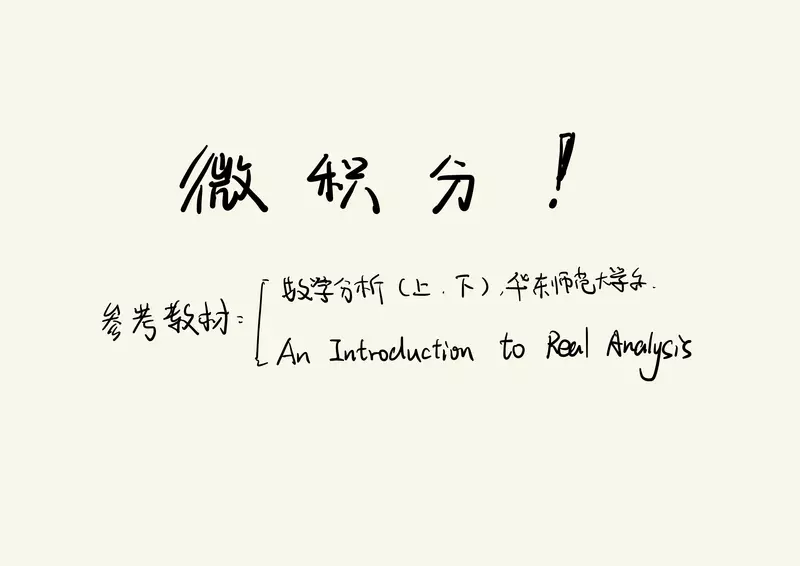 微积分！
参考教材：
数学分析（上．下），华东师范大学.
An Introduction to Real Analysis